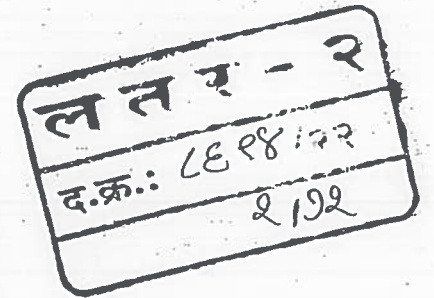 ल त र - २
द.क्र.: ८६१४/२२
२/७२